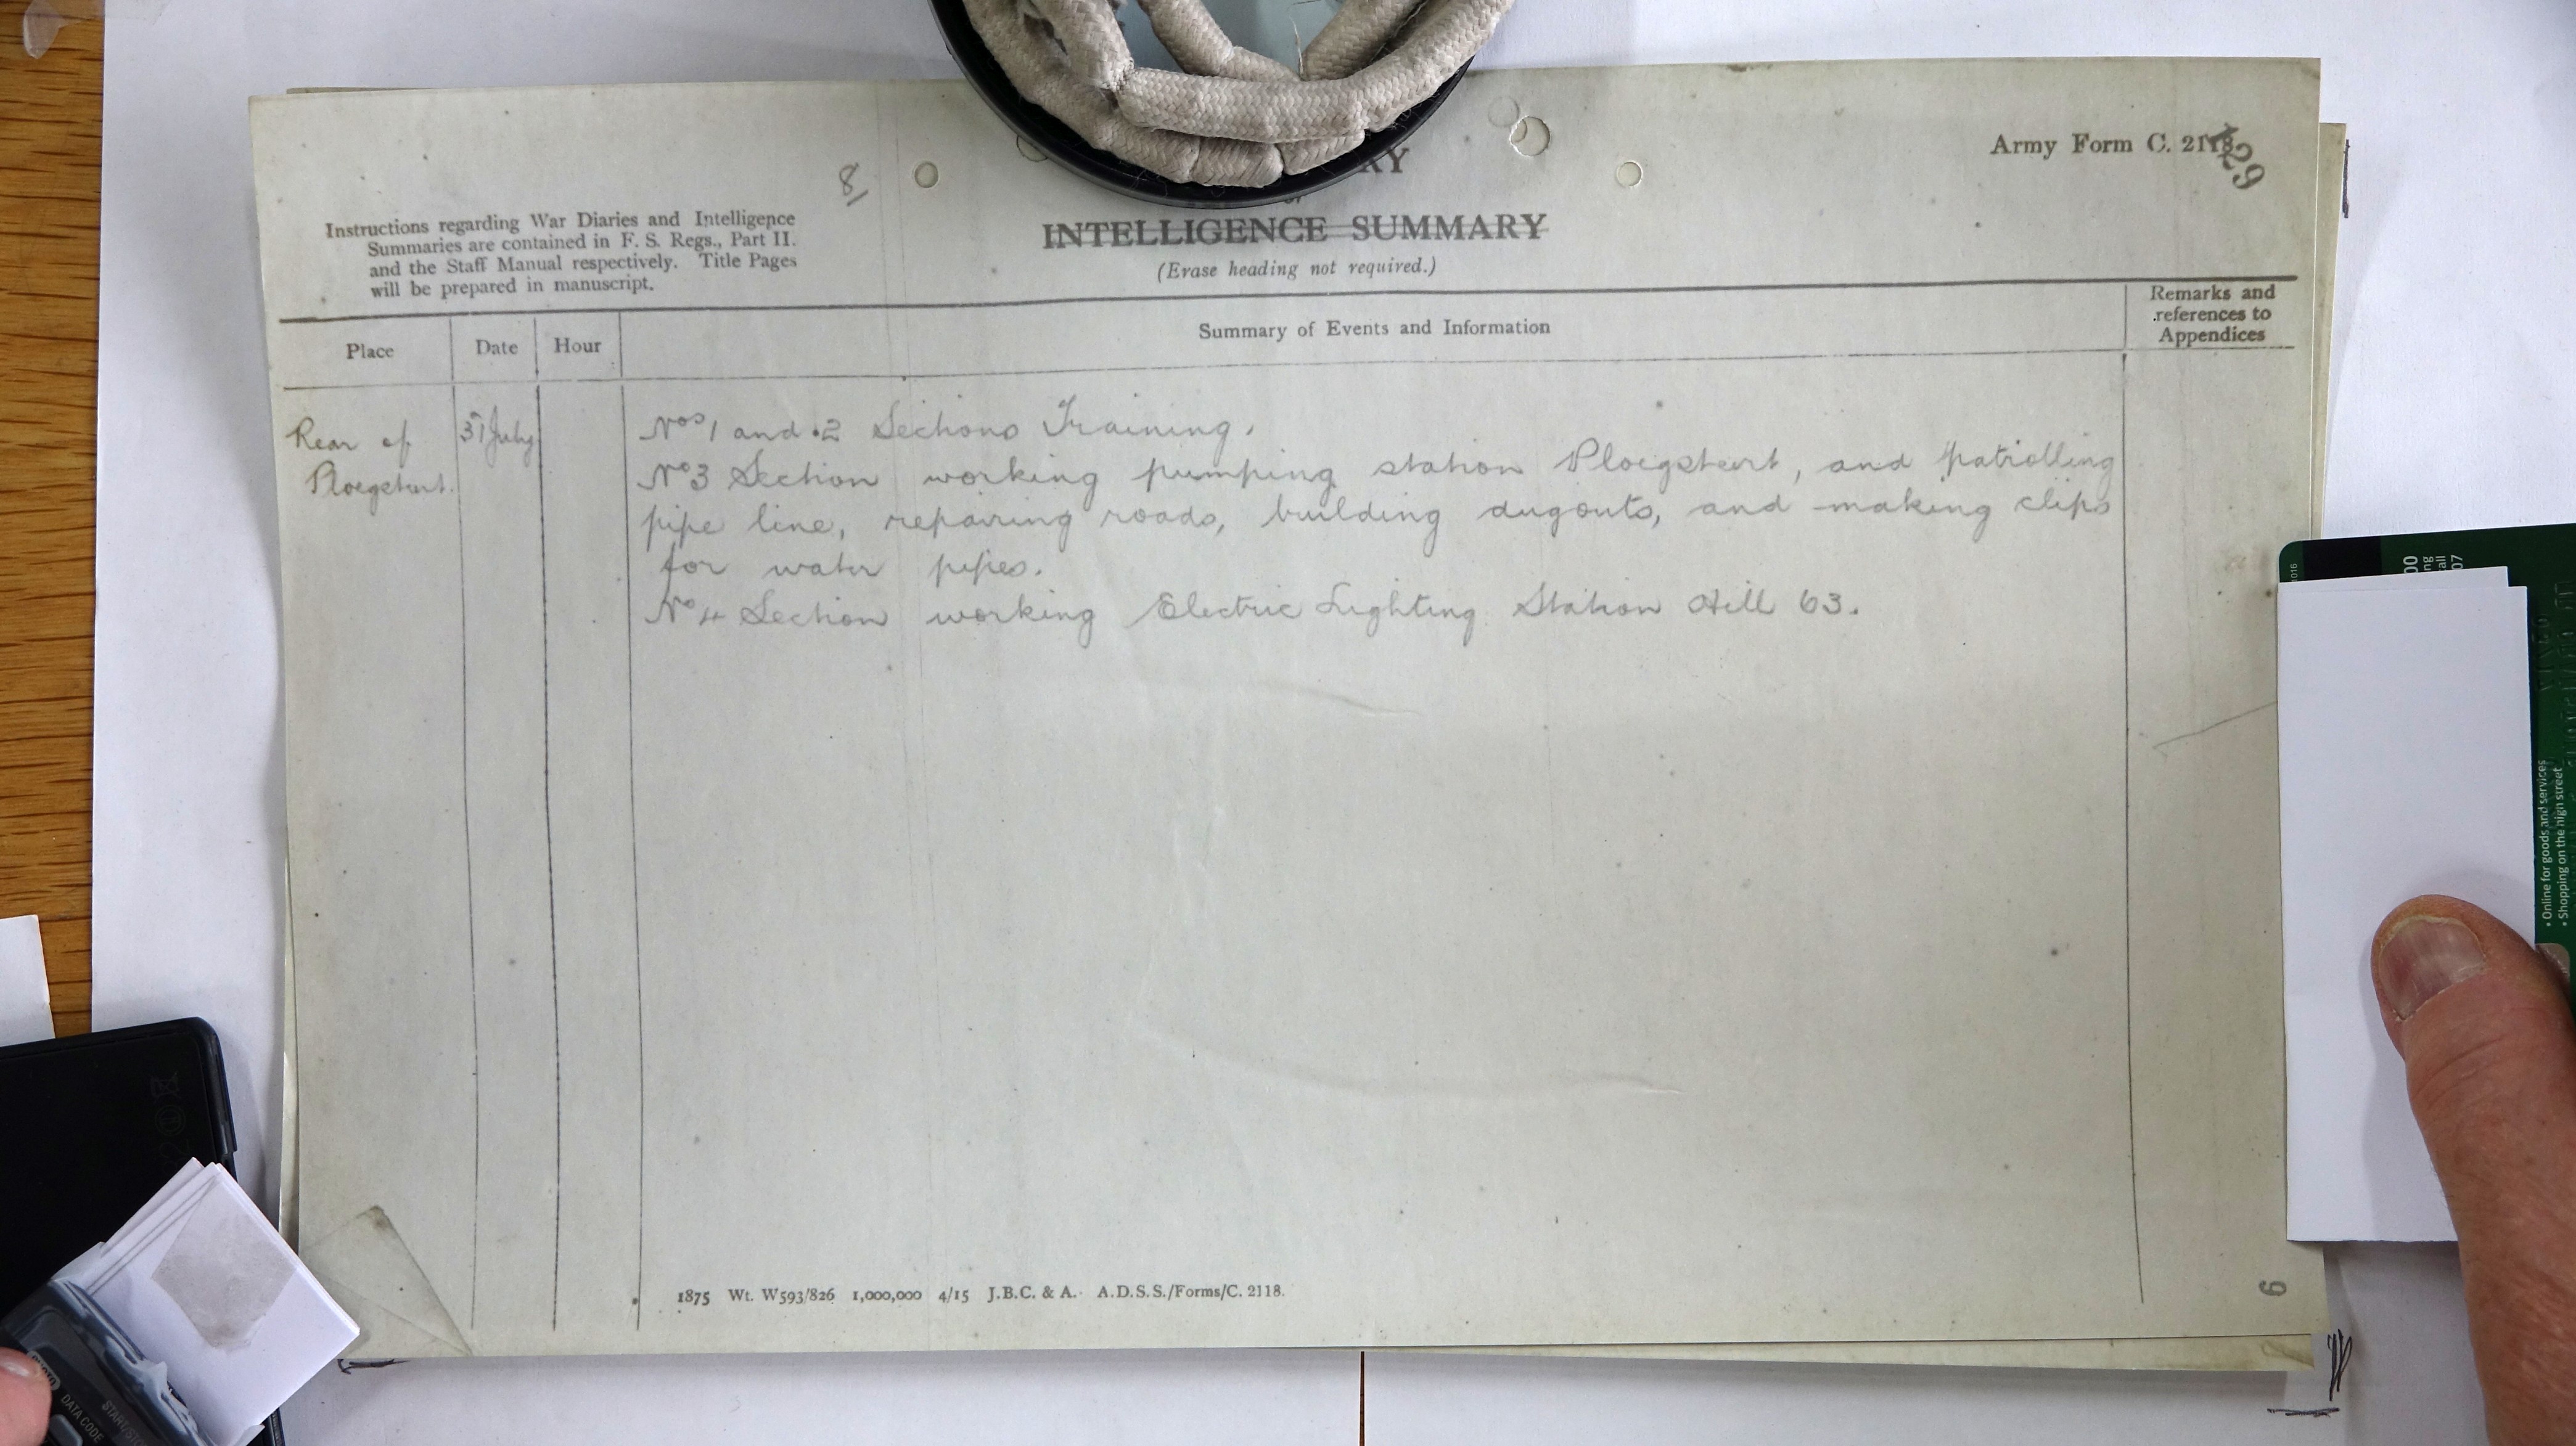 8/
Army Form C. 2118.
129
RY
or
INTELLIGENCE SUMMARY
(Erase heading not required.)
Instructions regarding War Diaries and Intelligence
Summaries are contained in F. S. Regs., Part II.
and the Staff Manual respectively. Title Pages
will be prepared in manuscript.
Place
Date
Hour
Summary of Events and Information
Remarks and
references to
Appendices
Rear of
Ploegsteert.
31 July
Nos 1 and 2 Sections Training.
No 3 Section working pumping station Ploegsteert, and patrolling
pipe line, repairing roads, building dugouts, and making clips
for water pipes.
No 4 Section working Electric Lighting Station Hill 63.
1875 Wt. W593/826 1,000,000 4/15 J.B.C. & A. A.D.S.S./Forms/C. 2118.
6
• Online for goods and services
• Shopping on the high street
DATA CODE